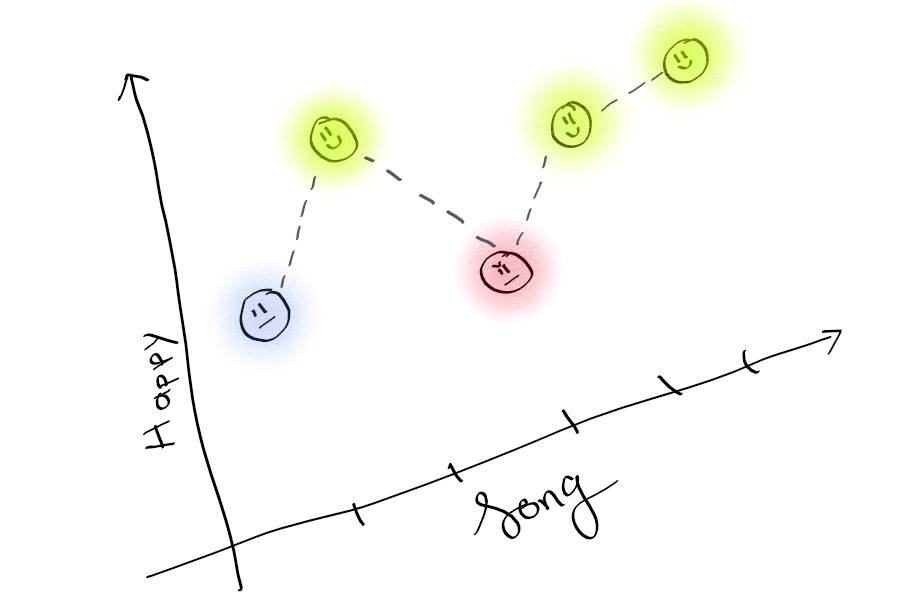 Happy
Song